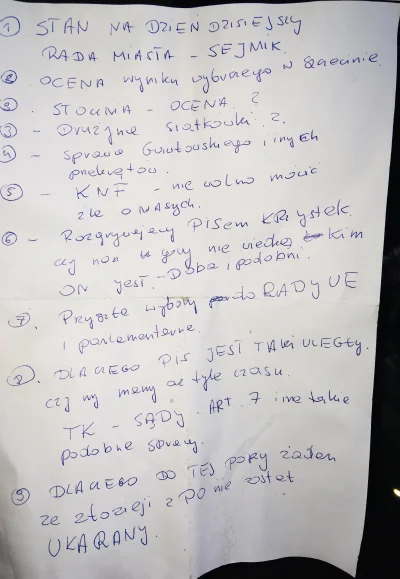 ① STAN NA DZIEŃ DZISIEJSZY
RADA MIASTA – SEJMIK.
② OCENA wyniku wyborczego w Szczecinie
②. STOCZNIA – OCENA ?
③ – Drużyna siatkówki ?.
④ – sprawa Gwiutowskiego i innych
przekrętów.
⑤ – KNF – nie wolno mówić
źle o NASZYCH.
⑥ – Rozgrywający PISem KRZYSTEK.
czy nasi w góry nie wiedzą kim
ON JEST. – Doba i podobni.
⑦. Przyszłe wybory do RADY UE
i parlamentarne.
⑧. DLACZEGO PIS JEST TAKI ULEGŁY.
czy my mamy aż tyle czasu.
TK – SĄDY. ART. 7 inne takie
podobne sprawy.
⑨ DLACZEGO DO TEJ PORY żaden
ze złodzieji z PO nie został
UKARANY.